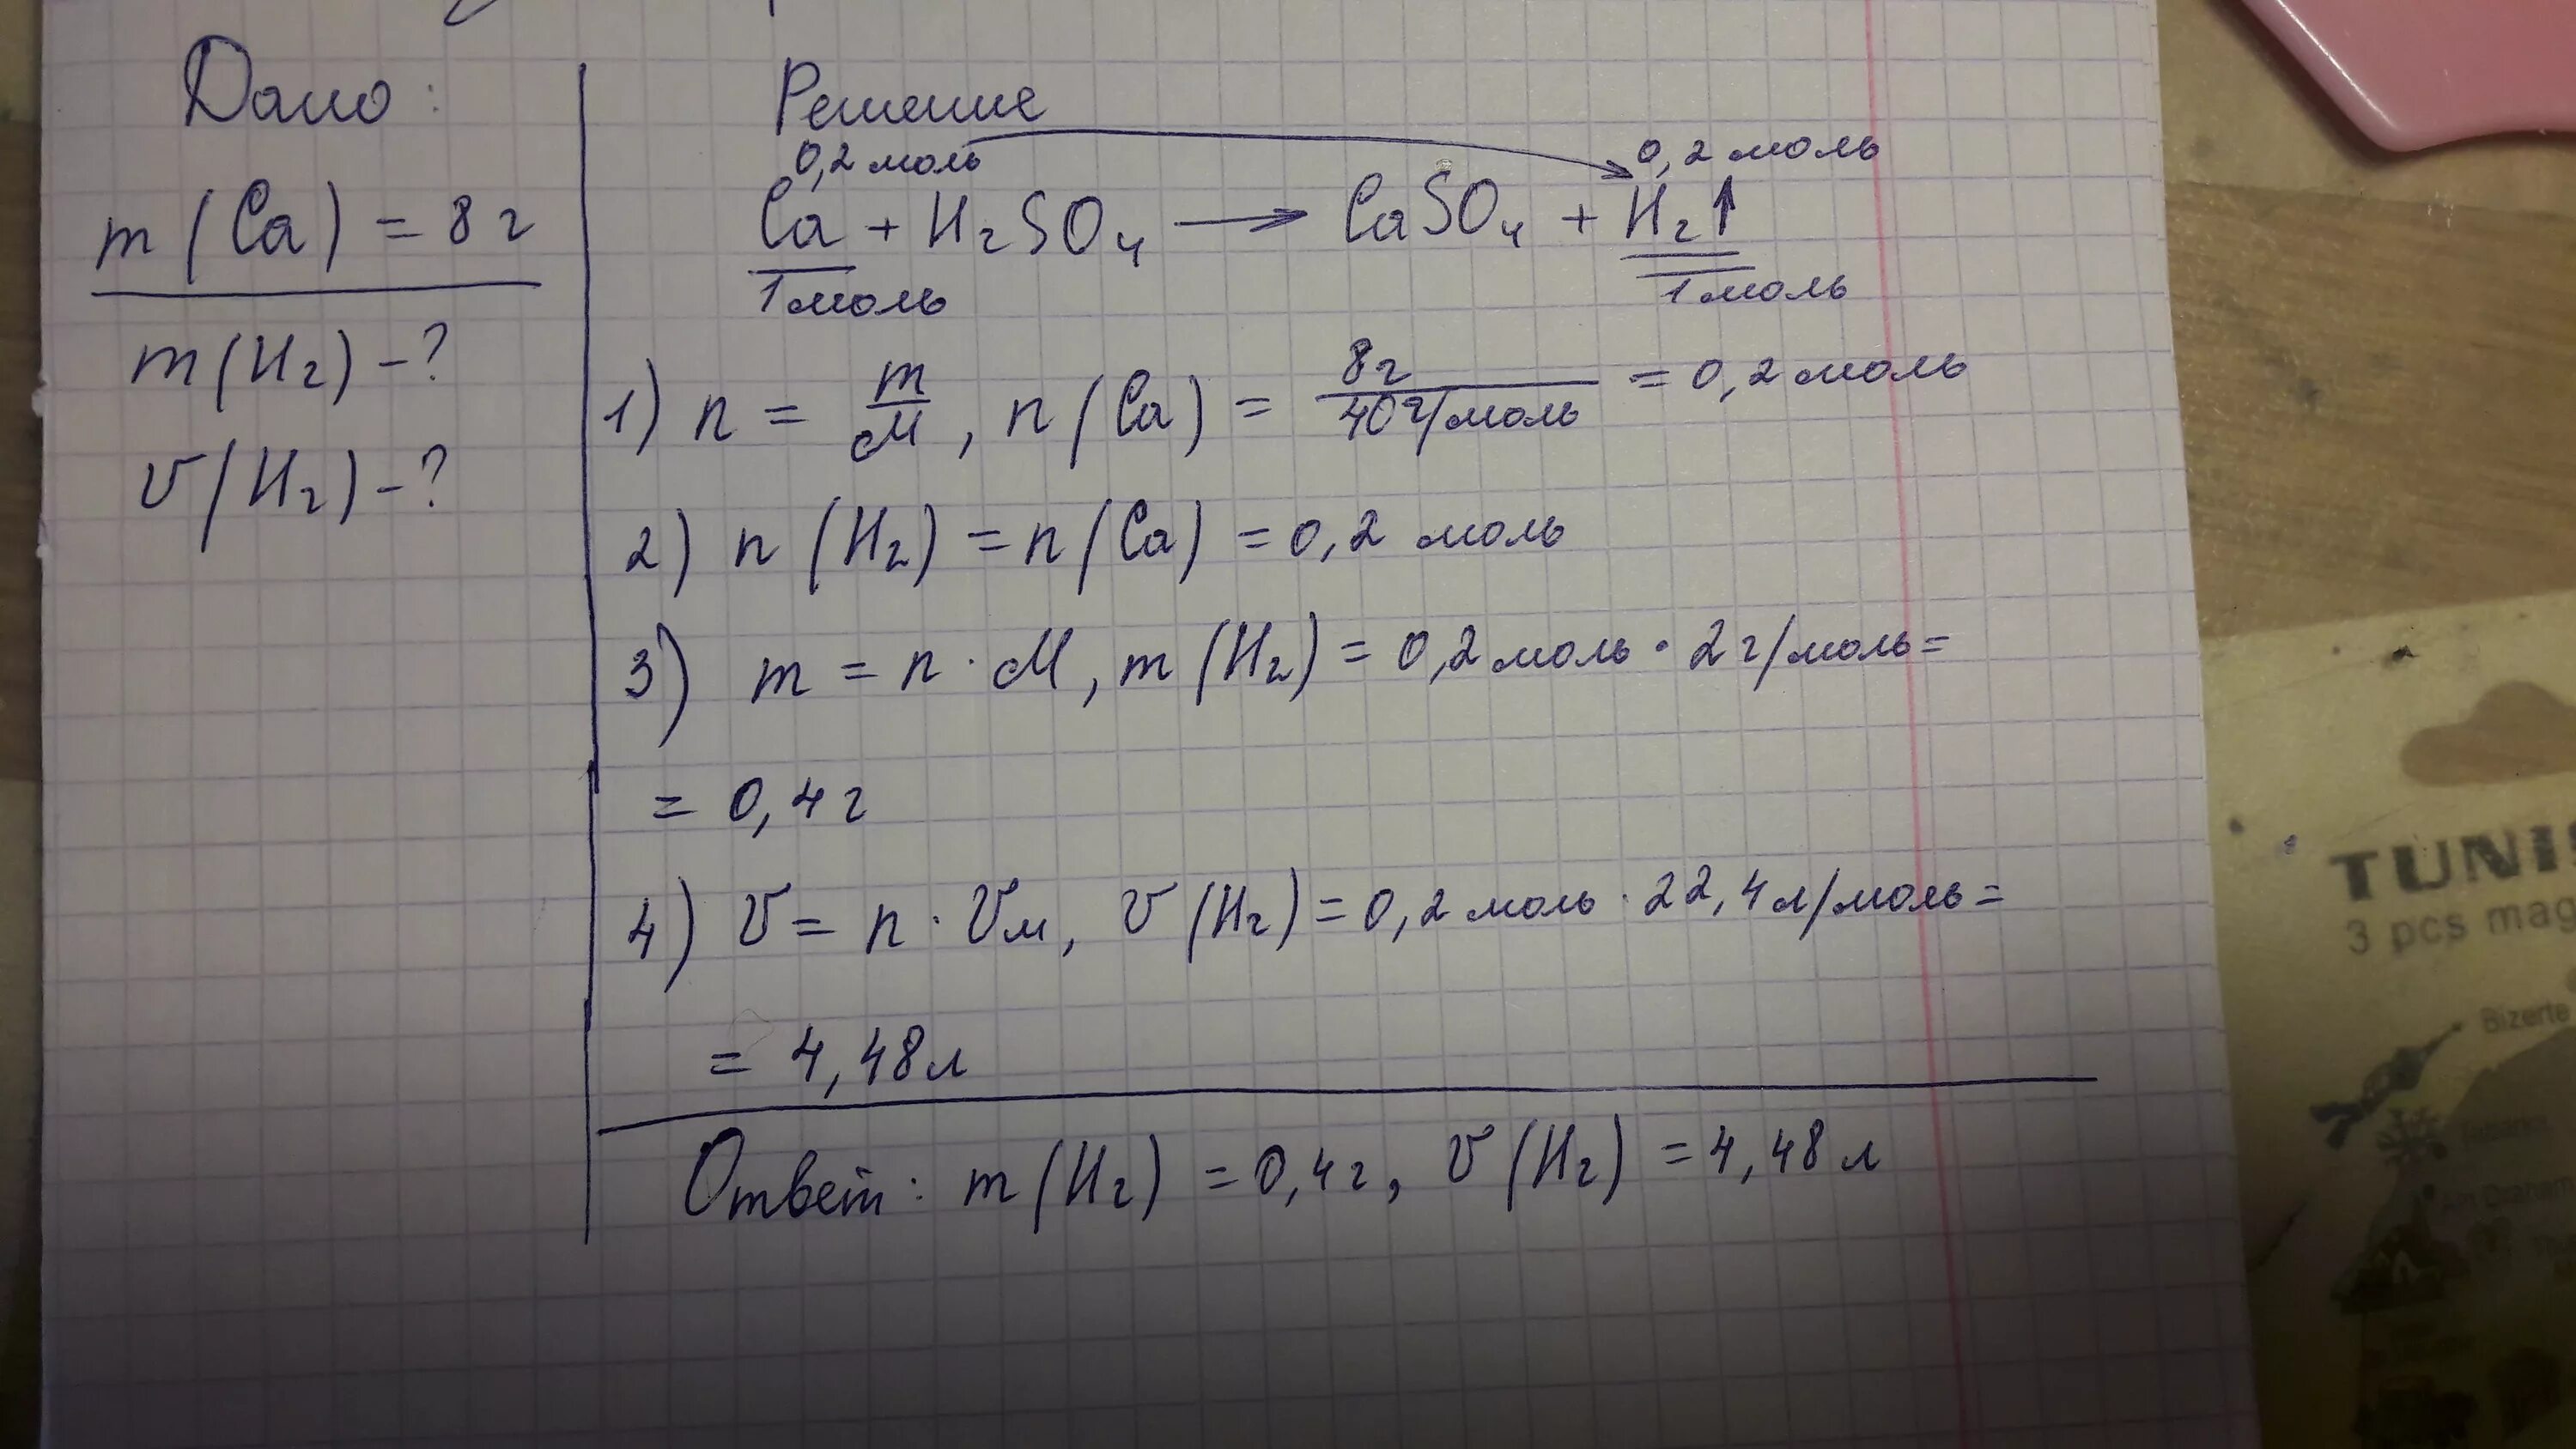 Дано:
m(Ca) = 8 г
m(H₂) - ?
V(H₂) - ?
Решение
0,2 моль 0,2 моль
Ca + H₂SO₄ → CaSO₄ + H₂↑
1 моль 1 моль
1) n = m/M, n(Ca) = 8г/40г/моль = 0,2 моль
2) n(H₂) = n(Ca) = 0,2 моль
3) m = n · M, m(H₂) = 0,2 моль · 2 г/моль =
= 0,4 г
4) V = n · Vм, V(H₂) = 0,2 моль · 22,4 л/моль =
= 4,48 л
Ответ: m(H₂) = 0,4г, V(H₂) = 4,48 л
TUNIS
3 pcs mag
Bizerte